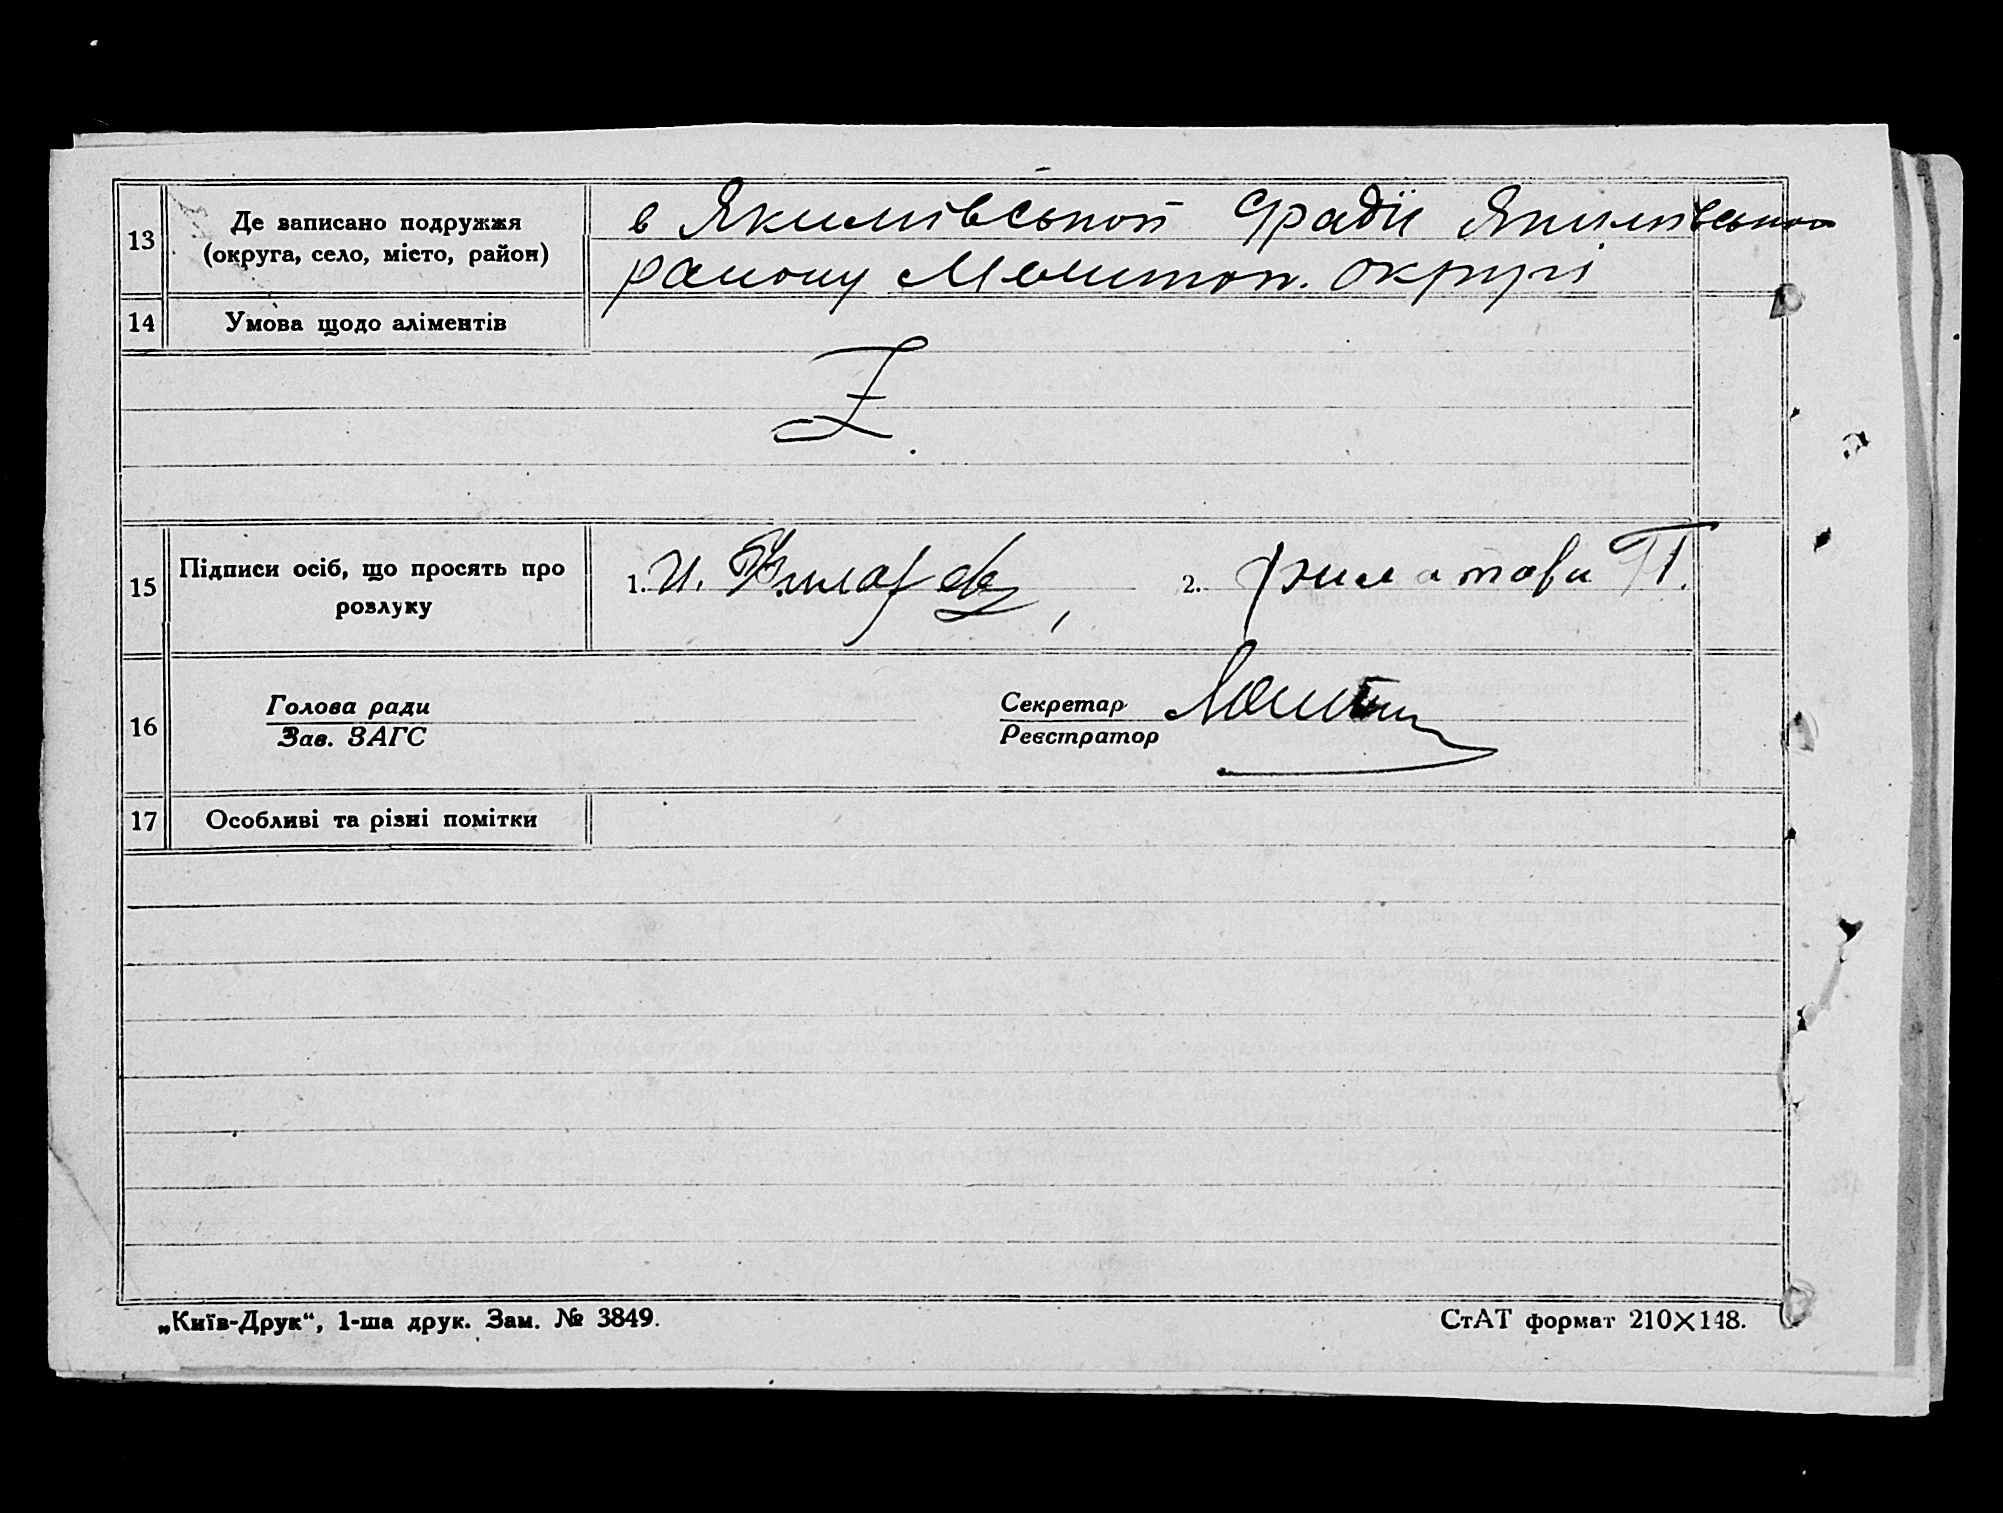 13 Де записано подружжя (округа, село, місто, район) в Якимівський с/раді Якимівського
району Мелитоп. округі
14 Умова щодо аліментів
Z
15 Підписи осіб, що просять про розлуку 1. И. 2. Филатова П.
16 Голова ради Секретар
Зав. ЗАГС Реєстратор
17 Особливі та різні помітки
„Київ-Друк“, 1-ша друк. Зам. № 3849. СтАТ формат 210×148.